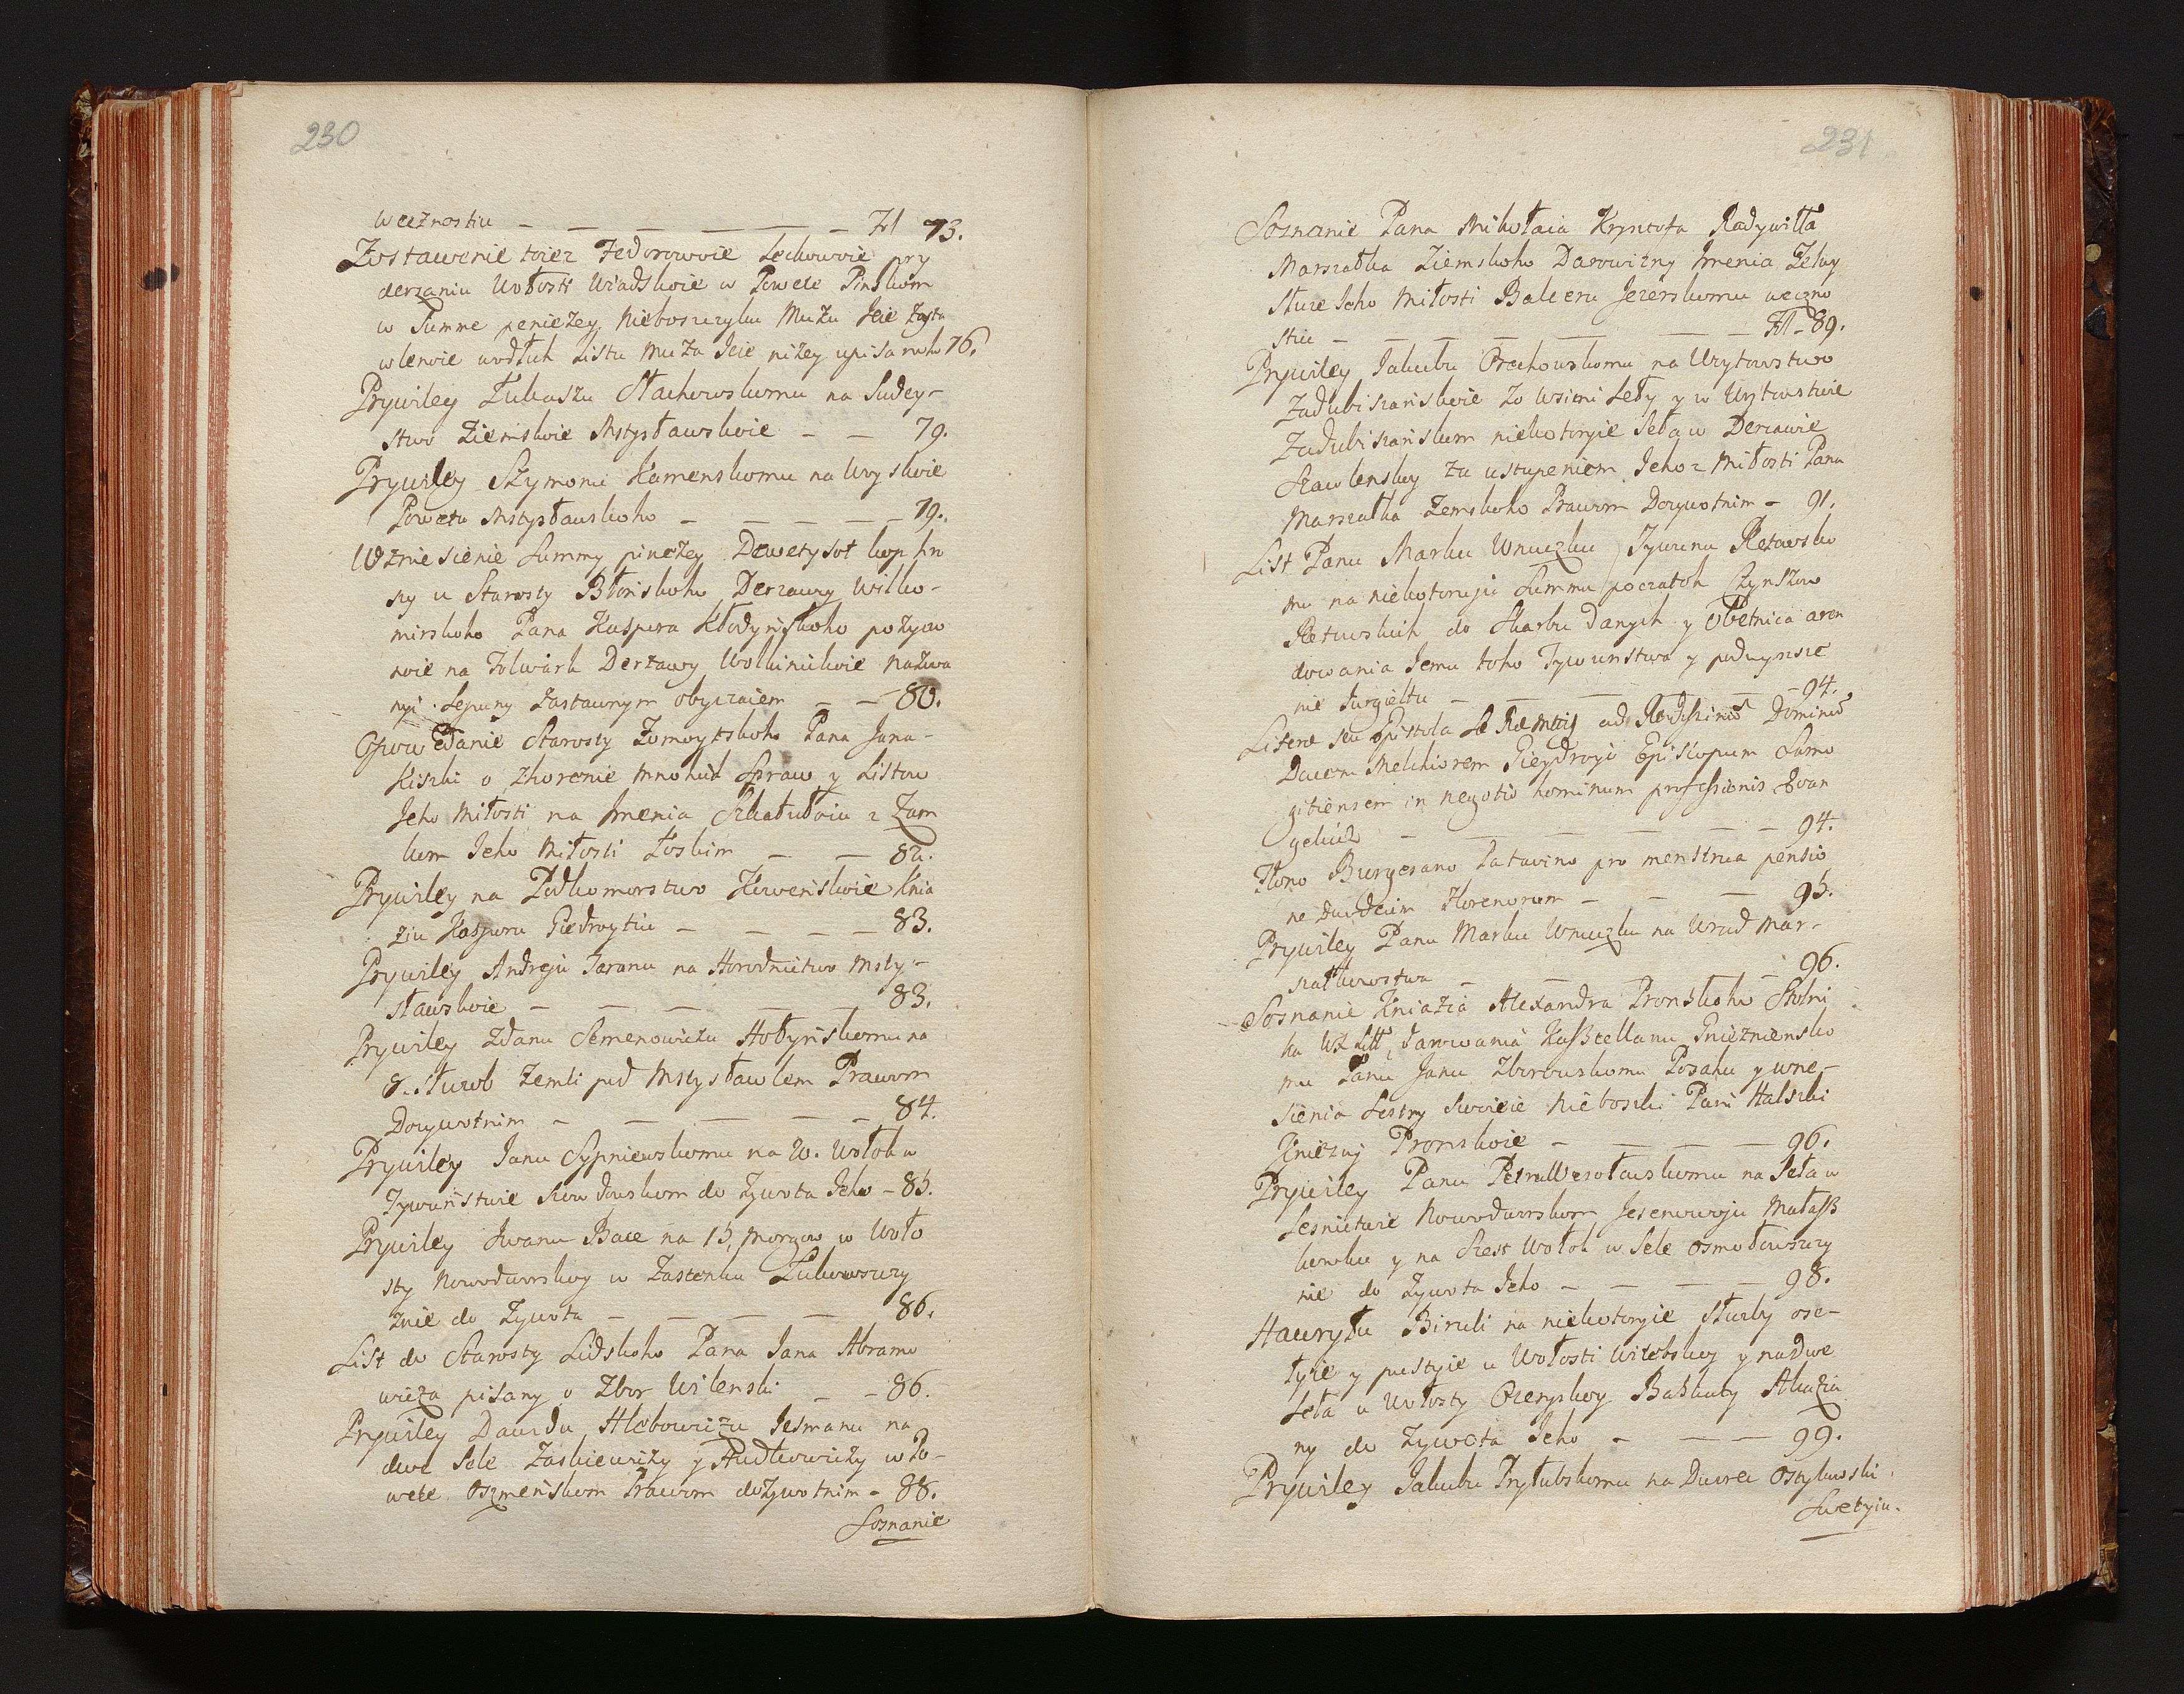 230
wecznostiu — — — — — — Fol 73.
Zostawenie toiez Fedorowoie Lechowoie pry
derzaniu Wołosti Wiadskoie w Powete Pinskom
w Summe penieżey nieboszczyku Mużu Jeie Zasta
wlenoie wodłuh Listu Muża Jeie niżey upisanoho 76.
Prywiley Łukaszu Stachowskomu na Sudey-
stwo Ziemskoie Mstysławskoie — — 79.
Prywiley Szymonu Kamenskomu na Woyskoie
Powetu Mstysławskoho — — — — — 79.
Wzniesienie Summy pineżey Dewetysot kop hro
szy u Starosty Błonskoho Derzawy Wilko-
mirskoho Pana Kaspera Kłodynskoho pożyczo
noie na Folwark Derżawy Wolkinikoie nazwa
nyi Lepuny Zastawnym obyczaiem — — 80.
Opowedanie Starosty Żomoytskoho Pana Jana
Kiszki o zhorenie mnohich Spraw y Listow
Jeho Miłosti na Imenia z Zam
kom Jeho Miłosti Łoskim — — 82.
Prywiley na Podkomorstwo Kowenskoie Knia
ziu Kasperu Giedroytiu — — — — 83.
Prywiley Andreju Taranu na Horodnictwo Msty-
sławskoie — — — — — 83.
Prywiley Zdanu Semenowiczu Hołynskomu na
8. służob Zemli pod Mstysławlem Prawom
Dożywotnim — — — — — 84.
Prywiley Janu Sypniewskomu na 20. wołok w
Tywunstwie do Żywota Jeho — 85.
Prywiley Iwanu Bace na 15. morgow w Woło
sty Nowodworskoy w Zastenku Łukowszczy
znie do Żywota — — — — 86.
List do Starosty Lidskoho Pana Jana Abramo
wicza pisany o Zbor Wilenski — — 86.
Prywiley Dawidu Hlebowiczu Jesmanu na
dwe Sele Zaskiewiczy y Hudłowiczy w Po-
wete Oszmenskom Prawom dożywotnim — 88.
Soznanie
231
Soznanie Pana Mikołaia Krysztofa Radywiłła
Marszałka Ziemskoho Darowizny Imenia Zelwy
Słuze Jeho Miłosti Balceru Jezerskomu weczno
stiu — — — — — — Fol — 89.
Prywiley Jakubu Orechowskomu na Woytowstwo
Zadubiszanskoie zo wsimi Seły y w Woytowstwie
Zadubiszanskom niekotoryie Seła w Derzawie
Szawlenskoy za ustupeniem Jehoz Miłosti Pana
Marszałka Zemskoho Prawom Dożywotnim — 91.
List Panu Marku Wnuczku Tywunu Retowsko
mu na niekotoruju Summu poczatok Czynszow
Retowskich do Skarbu danych y Obetnica aren
dowania Jemu toho Tywunstwa y podwyzsze
nie Jurgieltu — — — — 94.
Litere seu Epistola S. R. Mtis ad Rndissimū Dominū
Ducem Melchiorem Gieydroyc Episcopum Samo
gitiensem in negotio hominum professionis Evan
gelicæ — — — — — — 94.
Hono Burgesano Patavino pro menstrua pensio
ne duodecim Florenorum — — — 95.
Prywiley Panu Marku Wnuczku na Wrad Mar-
szałkowstwa — — — 96.
Soznanie Kniazia Alexandra Pronskoho Stolni
ka WX Litt. Darowania Kasztellanu Gnieznensko
mu Panu Janu Zborowskomu Posahu y wne-
sienia Sestry Swoieie Nieboszki Pani Halszki
Kniezny Pronskoie — — — — 96.
Prywiley Panu Petru Wesołowskomu na Seła w
Lesnictwie Nowodworskom Jesenowoju Małasz
kowku y na Szest Wołok w Sele Osmołowszczy
nie do Żywota Jeho — — — — 98.
Hawryłu Biruli na niekotoryie służby ose-
łyie y pustyie u Wołosti Witebskoy y na dwe
Seła u Wołosty Ozeryskoy
ny do Żywota Jeho — — — 99.
Prywiley Jakubu Prytubskomu na Dworec Ostykowski
Swetyiu.